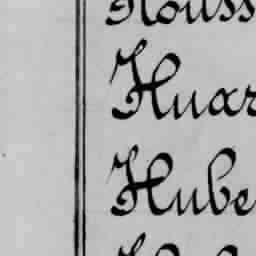 Houss
Huar
Hube